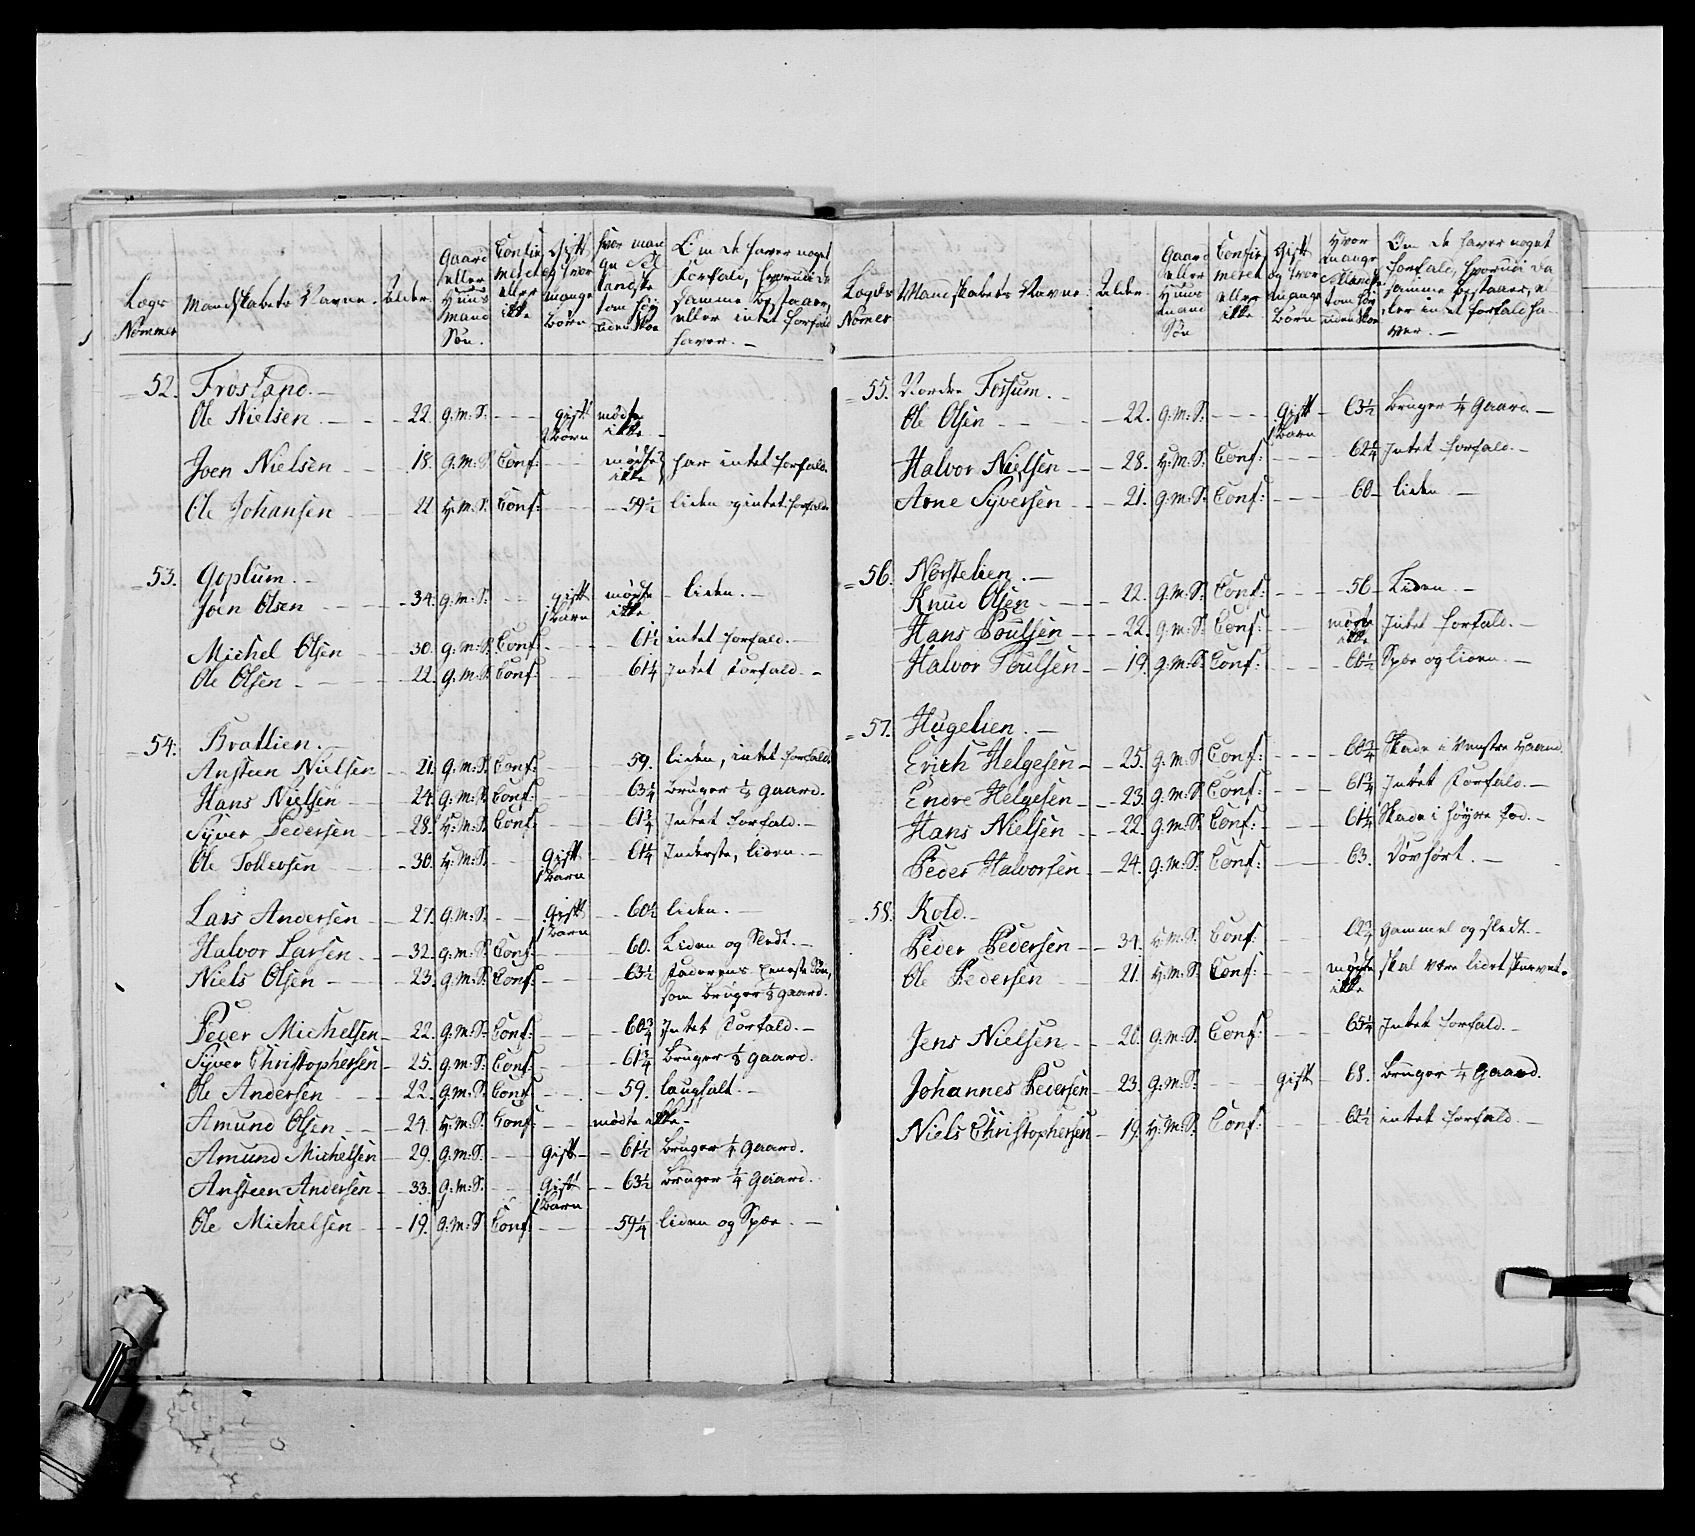 Lægs Nommer | Mandskabets Navne. | Alder. | Gaard eller Huus mand Søn. | Confir meret eller ikke | Gift og hvor mange Børn | hvor man ge Sel landske tom høj uden Skoe | Om de haver noget forfald, hvorudi de samme bestaaer, eller intet forfald haver. —
52. Frøsland. —
Ole Nielsen — 22. g.m.S. — gift 2 Børn mødte ikke —
Joen Nielsen — 18. g.m.S. Conf: — mødte ikke har intet forfald.
Ole Johansen 22 H.m.S. Conf: — 59½ liden og intet forfald.
53. Goplum. —
Joen Olsen — 34. g.m.S. — gift 1 Barn mødte ikke — liden. —
Michel Olsen — 30. g.m.S. Conf: — 61½ intet forfald. —
Ole Olsen — 22. g.m.S. Conf: — 61¼ Intet forfald. —
54. Brattlien. —
Ansteen Nielsen — 21. g.m.S. Conf: — 59. liden, intet forfald.
Hans Nielsen — 24. g.m.S. Conf: — 63¼ bruger ¼ gaard.
Syver Pedersen — 28. H.m.S. Conf: — 61¾ Intet forfald. —
Ole Tollevsen — 30. H.m.S. — Gift 1 Barn — 61¼ Inderste, liden. —
Lars Andersen — 27. g.m.S. — Gift 1 Barn — 60½ liden. —
Halvor Larsen — 32. g.m.S. Conf: — 60. Liden og Sledt. —
Niels Olsen — 23. g.m.S. Conf: — 63½ Faderens Eeneste Søn,
som bruger ⅛ gaard.
Peder Michelsen — 22. g.m.S. Conf: — 60¾ Intet forfald. —
Syver Christophersen — 25. g.m.S. Conf: — 61¾ bruger ⅛ gaard.
Ole Andersen — 22. g.m.S. Conf: — 59. laughalt. —
Amund Olsen — 24. H.m.S. Conf: — mødte ikke —
Amund Michelsen 29. g.m.S. — gift — 61½ bruger ¼ gaard.
Ansteen Andersen — 33. g.m.S. — gift 1 Barn — 63½ bruger ¼ gaard.
Ole Michelsen — 19. g.m.S. Conf: — 59¼ liden og Spæ. —
Lægds Nomer | Mandskabets Navne | Alder. | Gaard eller Huus mand Søn | Confir meret eller ikke | Gift og hvor mange Børn | Hvor mange Sellandske tom høj uden Skoe | Om de haver noget forfald, hvorudi da samme bestaaer, eller intet forfald haver. —
55. Nordre Fossum. —
Ole Olsen — 22. g.m.S. — Gift 1 Barn — 63½ bruger ¼ gaard —
Halvor Nielsen — 28. H.m.S. Conf: — 62¼ Intet forfald. —
Arne Syversen — 21. g.m.S. Conf: — 60 — liden —
56. Norstelien. —
Knud Olsen — 22. g.m.S. Conf: — 56 — Liden —
Hans Poulsen — 22. g.m.S. Conf: — mødte ikke Intet forfald. —
Halvor Poulsen — 19. g.m.S. Conf: — 60½ Spæ og liden. —
57. Hugelien. —
Erich Helgesen — 25. g.m.S. Conf: — 60¾ Skade i Venstre Haand.
Endre Helgesen — 23. g.m.S. Conf: — 61¾ Intet forfald. —
Hans Nielsen — 22. g.m.S. Conf: — 61¼ Skade i høyre fod. —
Peder Halvorsen — 24. g.m.S. Conf: — 63. Døvhørt. —
58. Kold. —
Peder Pedersen — 34. H.m.S. Conf: — 62¾ gammel og sledt. —
Ole Pedersen — 21. H.m.S. Conf: — mødte ikke skal være lidet skrevet.
Jens Nielsen — 20. g.m.S. Conf: — 65¼ Intet forfald. —
Johannes Pedersen — 23. g.m.S. — gift — 68. bruger ¼ gaard.
Niels Christophersen — 19. H.m.S. Conf: — 62½ intet forfald. —